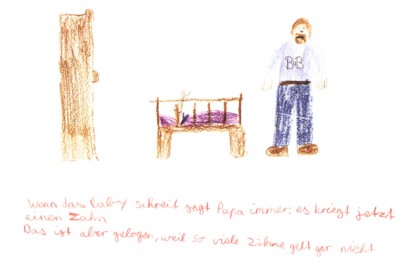 BB
Wenn das Baby schreit sagt Papa immer, es kriegt jetzt
einen Zahn
Das ist aber gelogen, weil so viele Zähne gibt gar nicht